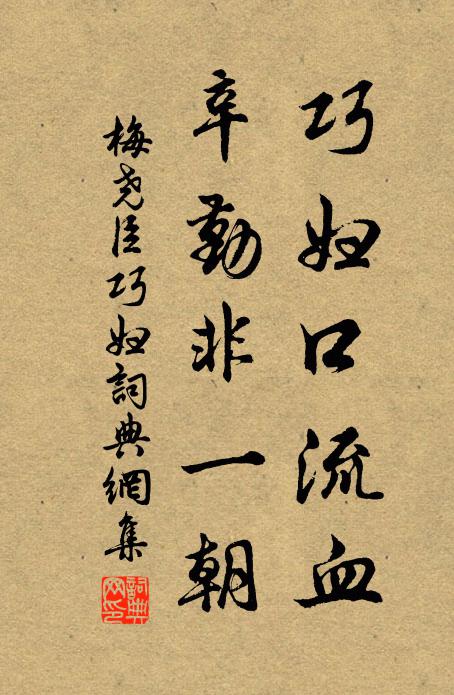 巧妇口流血
辛勤非一朝
梅尧臣巧妇詞典網集
詞典网印